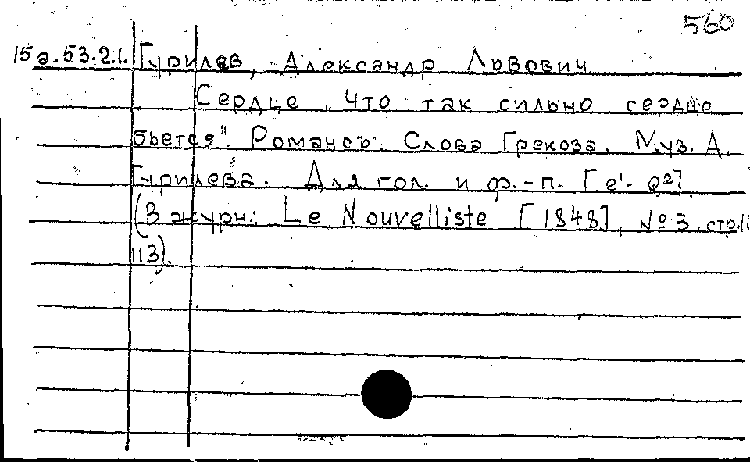 560
15а.53.2.1. Гурилев, Александр Львович
Сердце, что так сильно сердце
бьется". Романсъ. Слова Грекова. Муз. А.
Гурилева. Для гол. и ф.-п. [e¹-g²]
(В журн: Le Nouvelliste [1848], №3, стр.
113).